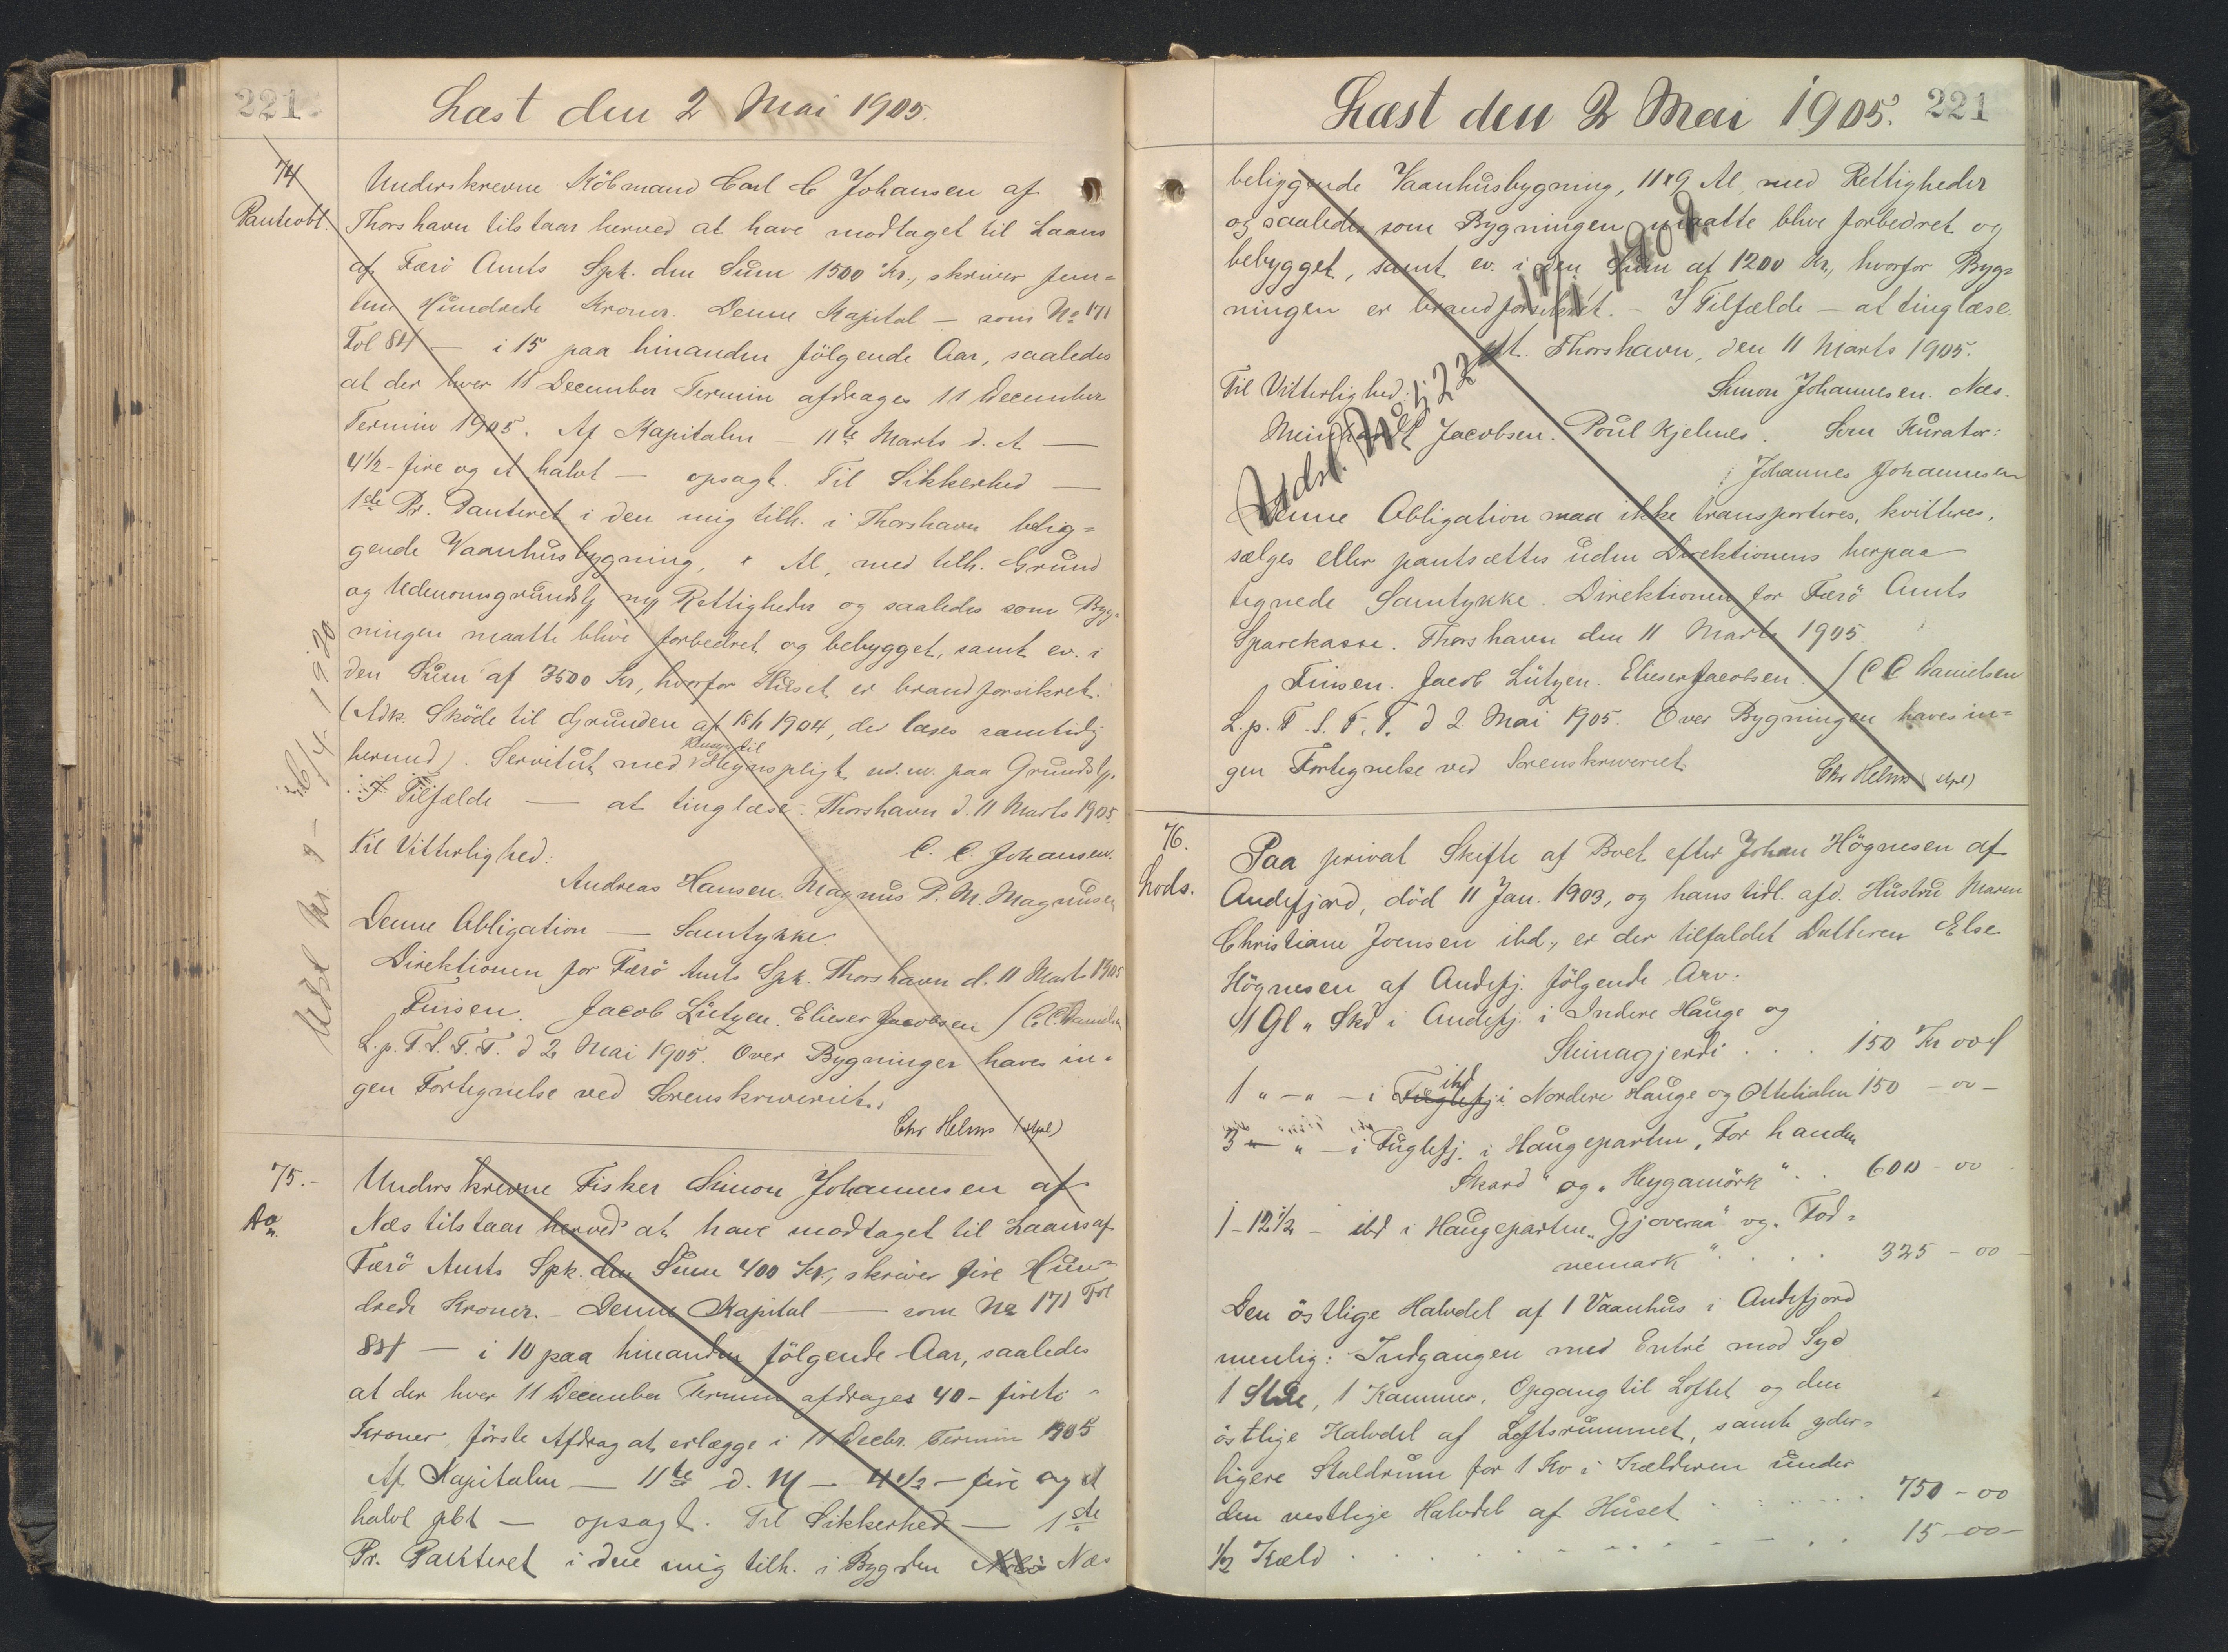 221
Læst den 2 Mai 1905.
74
Panteobl.
Underskrevne Köbmand Carl C Johansen af
Thorshavn tilstaar herved at have modtaget til Laans
af Færö Amts Spk. den Sum 1500 Kr., skriver fem=
ten Hundrede Kroner. Denne Kapital — som No 171
Fol 84 — i 15 paa hinanden fölgende Aar, saaledes
at der hver 11 December Termin afdrages 11 December
Termin 1905. Af Kapitalen — 11te Marts d. A —
4½ - fire og et halvt — opsagt. Til Sikkerhed —
1ste Pr. Panteret i den mig tilh. i Thorshavn belig=
gende Vaanhusbygning, " Al, med tilh. Grund
og Udenomsgrund Rettigheder og saaledes som Byg=
ningen maatte blive forbedret og bebygget, samt ev. i
den Sum af 3500 Kr, hvorfor Huset er brandforsikret.
(Adk. Sköde til Grunden af 18/11 1904, der læses samtidig
hermed). Servitut med Hegnspligt paa Grundst.
I Tilfælde — at tinglæse. Thorshavn d. 11 Marts 1905.
Til Vitterlighed: C. C. Johansen.
Andreas Hansen. Magnus P. M. Magnusen
Denne Obligation — Samtykke.
Direktionen for Færö Amts Spk. Thorshavn d. 11 Marts 1905
Finsen. Jacob Lützen. Elieser Jacobsen / C. C. Danielsen
L. p. T. S. T. T. d 2 Mai 1905. Over Bygningen haves in=
gen Fortegnelse ved Sorenskriveriet.
Chr Helms
Udsl. 16/4 1920
75.-
Do.
Underskrevne Fisker Simon Johannesen af
Næs tilstaar herved at have modtaget til Laans af
Færö Amts Spk. den Sum 400 Kr, skriver fire Hun=
drede Kroner. - Denne Kapital — som No 171 Fol
84 — i 10 paa hinanden fölgende Aar, saaledes
at der hver 11 December Termin afdrages 40 - fireti -
Kroner, förste Afdrag at erlægge i 11 Decbr. Termin 1905
Af Kapitalen — 11te d. M — 4½ - fire og et
halvt pCt — opsagt. Til Sikkerhed — 1ste
Pr. Panteret i den mig tilh. i Bygden Næs
Læst den 2 Mai 1905.
221
beliggende Vaanhusbygning, 11 x 9 Al, med Rettigheder
og saaledes som Bygningen maatte blive forbedret og
bebygget, samt ev. i den Sum af 1200 Kr, hvorfor Byg=
ningen er brandforsikret. - I Tilfælde — at tinglæse.
pt. Thorshavn, den 11 Marts 1905.
Til Vitterlighed: Simon Johannesen. Næs.
Meinhardt Jacobsen. Poul Kjelnes. Som Kurator:
Johannes Johannesen
Denne Obligation maa ikke transporteres, kvitteres,
sælges eller pantsættes uden Direktionens herpaa
tegnede Samtykke. Direktionen for Færö Amts
Sparekasse. Thorshavn den 11 Marts 1905.
Finsen. Jacob Lützen. Elieser Jacobsen. / C C Danielsen
L. p. T. S. T. T. d 2. Mai 1905. Over Bygningen haves in=
gen Fortegnelse ved Sorenskriveriet.
Chr Helms
76.
Lods.
Paa privat Skifte af Boet efter Johan Högnesen af
Andefjord, död 11 Jan. 1903, og hans tidl. afd. Hustru Maren
Christiane Joensen ibd., er der tilfaldet Datteren Else
Högnesen af Andefj. fölgende Arv.
11 Gl " Skd i Andefj. i Indere Hauge og
Steinagjerdi . . . 150 Kr 00
1 " - " - i Fuglefj ibd i Nordere Hauge og 150 - 00 -
3 - " - i Fuglefj. i Haugeparten "For handen
Skard" og "Heygamörk" . . 600 - 00
1 - 12½ - ibd i Haugeparten "Gjoveraa" og "Tod=
nemark" . . . . 325 - 00 -
Den östlige Halvdel af 1 Vaanhus i Andefjord
nemlig: Indgangen med Entré mod Syd
1 Stue, 1 Kammer, Opgang til Loftet og den
östlige Halvdel af Loftsrummet, samt yder=
ligere Staldrum for 1 Ko i Kælderen under
den vestlige Halvdel af Huset . . . . . 750 - 00
½ Kæld . . . . . . . . . . 15 - 00 -